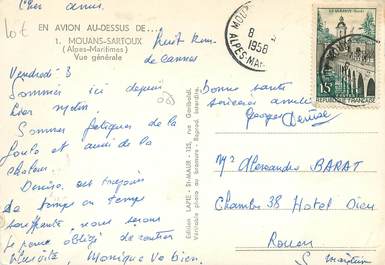 Cher amis,
lot
EN AVION AU-DESSUS DE...
1. MOUANS-SARTOUX
(Alpes-Maritimes)
Vue générale
huit km
de cannes
Vendredi 8
Sommes ici depuis
hier matin.
Sommes fatigués de la
foule et aussi de la
chaleur.
Denise, est toujours
de temps en temps
souffrante, nous serons
le pour obligé de rentrer
Monique va bien.
Edition LAPIE - St-MAUR - 125, rue Garibaldi
Véritable photo au bromure - Reprod. interdite
MOU
8
1958
ALPES-MAR
LE QUESNOY
15F
REPUBLIQUE FRANCAISE
Bonne santé
sincères amitiés
Georges Denise
Mr Alexandre BARAT
Chambre 38 Hotel Dieu
Rouen
S. maritime